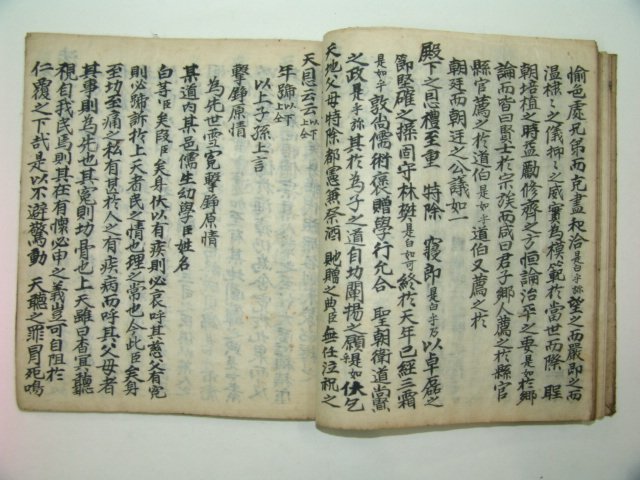 愉色處兄弟而克盡和洽是白乎旀望之而嚴即之而
溫棣棣之儀抑抑之威實爲模範於當世而際 聖
朝培植之時益勵修齊之方恒論治平之要是如於鄕
論而皆曰賢士於宗族而咸曰君子鄕人薦之於縣官
縣官薦之於道伯是如乎道伯又薦之於
朝廷而朝廷之公議如一
殿下之恩禮至重 特除 寢郞是白乎乃以卓磊之
節堅確之操固守林樊是白如可終於天年已經三霜
是如乎敦尙儒術褒贈學行允合 聖朝衛道尙
之政是乎旀其於爲子之道自切闡揚之願是如伏乞
天地父母特除都憲兼祭酒 貤贈之典臣無任泣祝之
天恩云云以上仝
年號以下上仝
以上子孫上言
擊錚原情
爲先世雪寃擊錚原情
某道內某邑儒生幼學臣姓名
白等臣矣段臣矣身伏以有疾則必哀呼其慈父有寃
則必號訴於上天者民之情也理之常也今此臣矣身
至切至痛之私有甚於人之有疾病而呼其父母者
其事則爲先也其寃則切骨也上天雖曰杳冥聽
視自我民焉則其在有懷必申之義豈可自阻於
仁覆之下哉是以不避驚動 天聽之罪冒死鳴